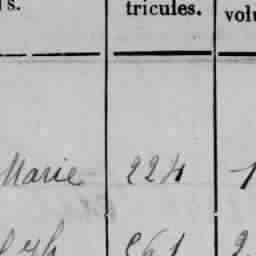 s. tricules. volu
Marie 224 1
261 2